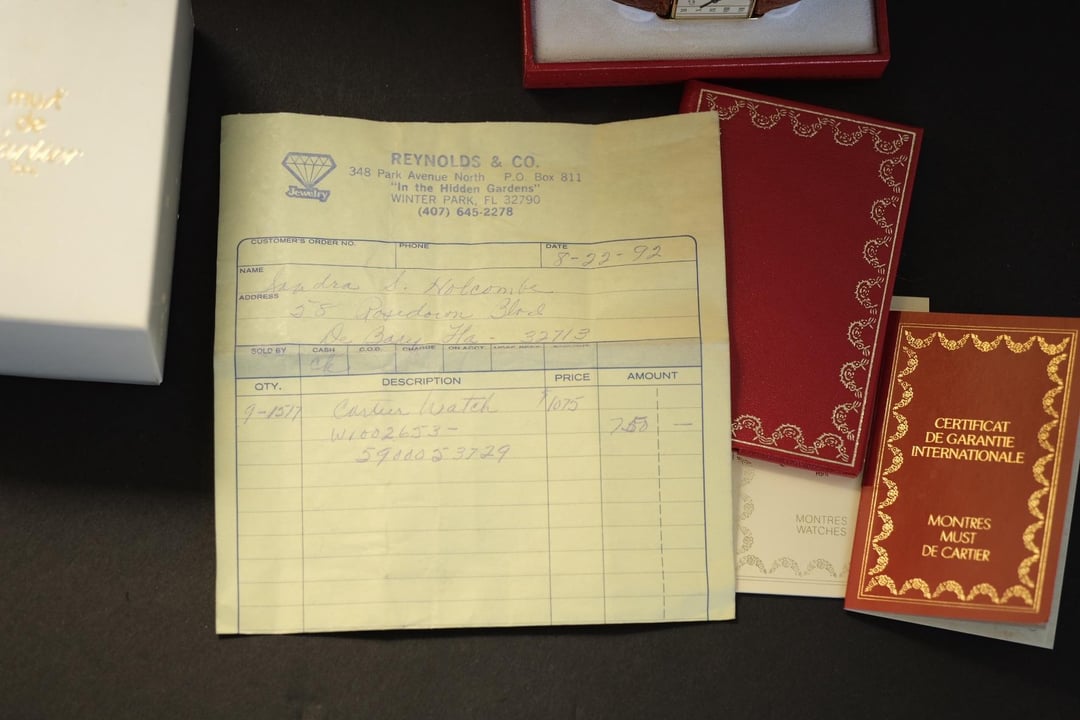 must
de
Cartier
REYNOLDS & CO.
348 Park Avenue North P.O. Box 811
"In the Hidden Gardens"
WINTER PARK, FL 32790
(407) 645-2278
Jewelry
CUSTOMER'S ORDER NO. PHONE DATE
8-22-92
NAME
Sandra S. Holcombe
ADDRESS
De Bary Fla - 32713
SOLD BY CASH C.O.D. CHARGE ON ACCT.
ck
QTY. DESCRIPTION PRICE AMOUNT
9-1517 Cartier Watch $1075
W1002653-
590005 3729
CERTIFICAT
DE GARANTIE
INTERNATIONALE
MONTRES
MUST
DE CARTIER
MONTRES
WATCHES